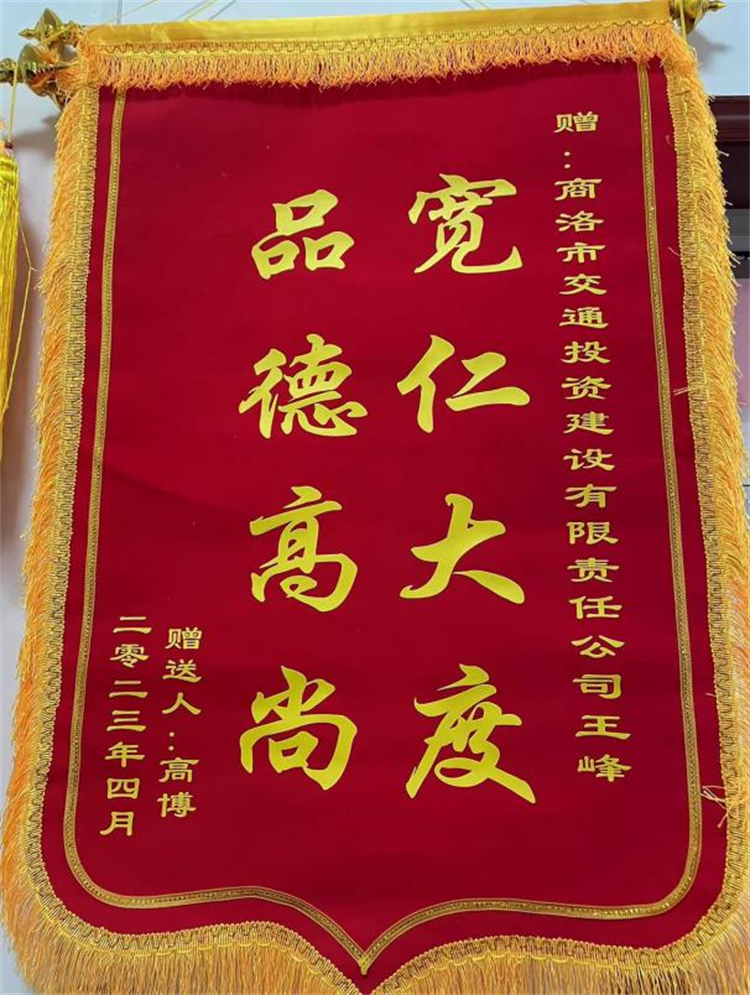 赠：商洛市交通投资建设有限责任公司王峰
宽仁大度
品德高尚
赠送人：高博
二零二三年四月